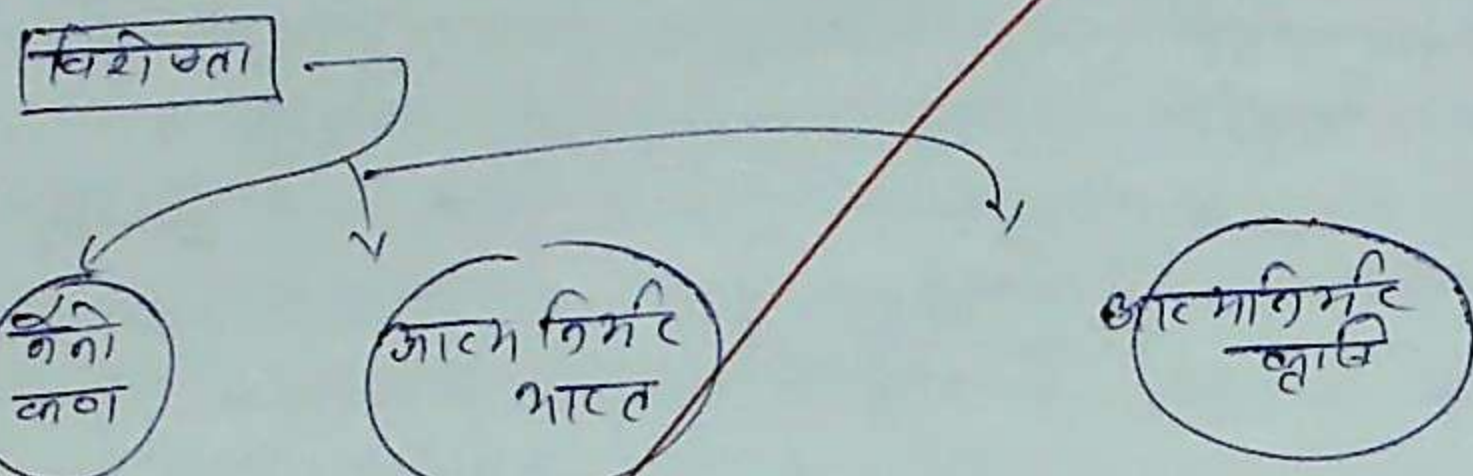 विशेषता
नैनो
कण
आत्म निर्भर
भारत
आत्मनिर्भर
कृषि